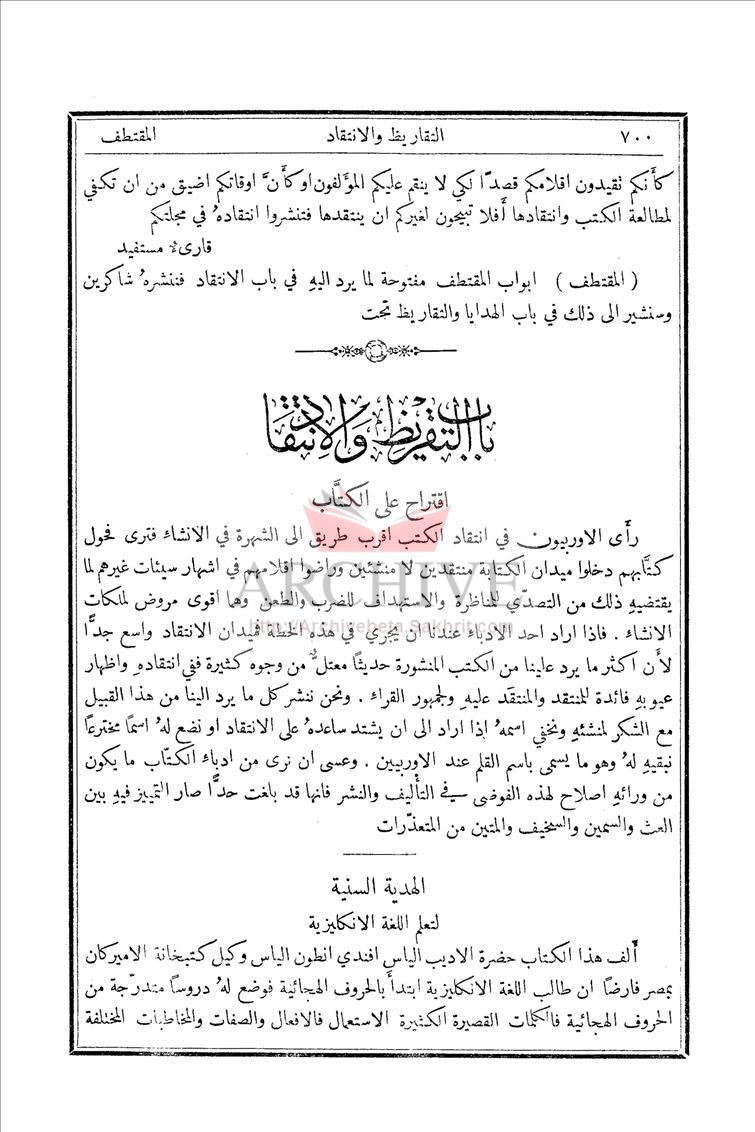 ٧٠٠ التقاريظ والانتقاد المقتطف
كأنكم تقيدون اقلامكم قصدًا لكي لا ينقم عليكم المؤلفون او كأنَّ اوقاتكم اضيق من ان تكفي
لمطالعة الكتب وانتقادها أفلا تبيحون لغيركم ان ينتقدها فتنشروا انتقادهُ في مجلتكم
قارىءٌ مستفيد
( المقتطف ) ابواب المقتطف مفتوحة لما يرد اليهِ في باب الانتقاد فننشرهُ شاكرين
وسنشير الى ذلك في باب الهدايا والتقاريظ تحت
باب التقريظ والانتقاد
اقتراح على الكتَّاب
رأى الاوربيون في انتقاد الكتب اقرب طريق الى الشهرة في الانشاء فترى فحول
كتَّابهم دخلوا ميدان الكتابة منتقدين لا منشئين وراضوا اقلامهم في اشهار سيئات غيرهم لما
يقتضيهِ ذلك من التصدّي للمناظرة والاستهداف للضرب والطعن وهما اقوى مروض لملكات
الانشاء . فاذا اراد احد الادباء عندنا ان يجري في هذه الخطة فميدان الانتقاد واسع جدًّا
لأن اكثر ما يرد علينا من الكتب المنشورة حديثًا معتلٌّ من وجوه كثيرة ففي انتقادهِ واظهار
عيوبهِ فائدة للمنتقد والمنتقَد عليهِ ولجمهور القراء . ونحن ننشر كل ما يرد الينا من هذا القبيل
مع الشكر لمنشئهِ ونخفي اسمهُ اذا اراد الى ان يشتد ساعدهُ على الانتقاد او نضع لهُ اسمًا مخترعًا
نبقيهِ لهُ وهو ما يسمى باسم القلم عند الاوربيين . وعسى ان نرى من ادباء الكتّاب ما يكون
من ورائهِ اصلاح لهذه الفوضى في التأليف والنشر فانها قد بلغت حدًّا صار التمييز فيهِ بين
الغث والسمين والسخيف والمتين من المتعذّرات
الهدية السنية
لتعلم اللغة الانكليزية
أَلف هذا الكتاب حضرة الاديب الياس افندي انطون الياس وكيل كتبخانة الاميركان
بمصر فارضًا ان طالب اللغة الانكليزية ابتدأ بالحروف الهجائية فوضع لهُ دروسًا متدرّجة من
الحروف الهجائية فالكلمات القصيرة الكثيرة الاستعمال فالافعال والصفات والمخاطبات المختلفة
ARCHIVE
http://Archivebeta.Sakhrit.com